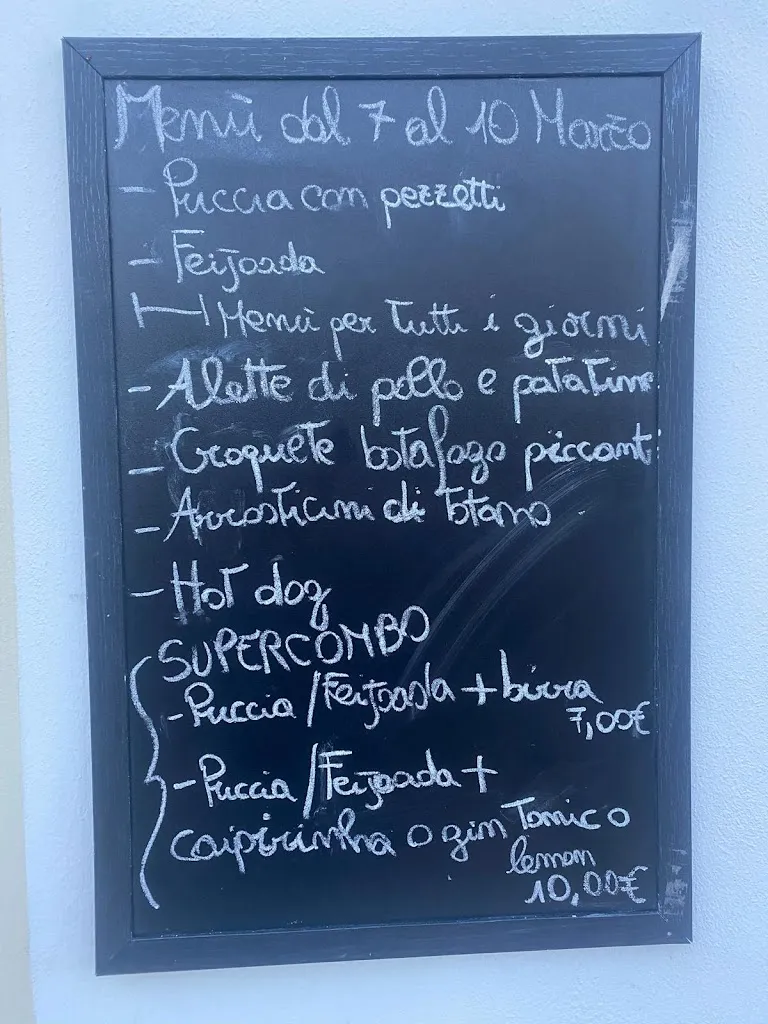 Menù dal 7 al 10 Marzo
- Puccia con pezzetti
- Feijoada
Menù per tutti i giorni
- Alette di pollo e patatine
- Croquete botafogo piccanti
- Arrosticini di totano
- Hot dog
SUPERCOMBO
- Puccia / Feijoada + birra
7,00€
- Puccia / Feijoada +
caipirinha o gin Tonic o
lemon
10,00€